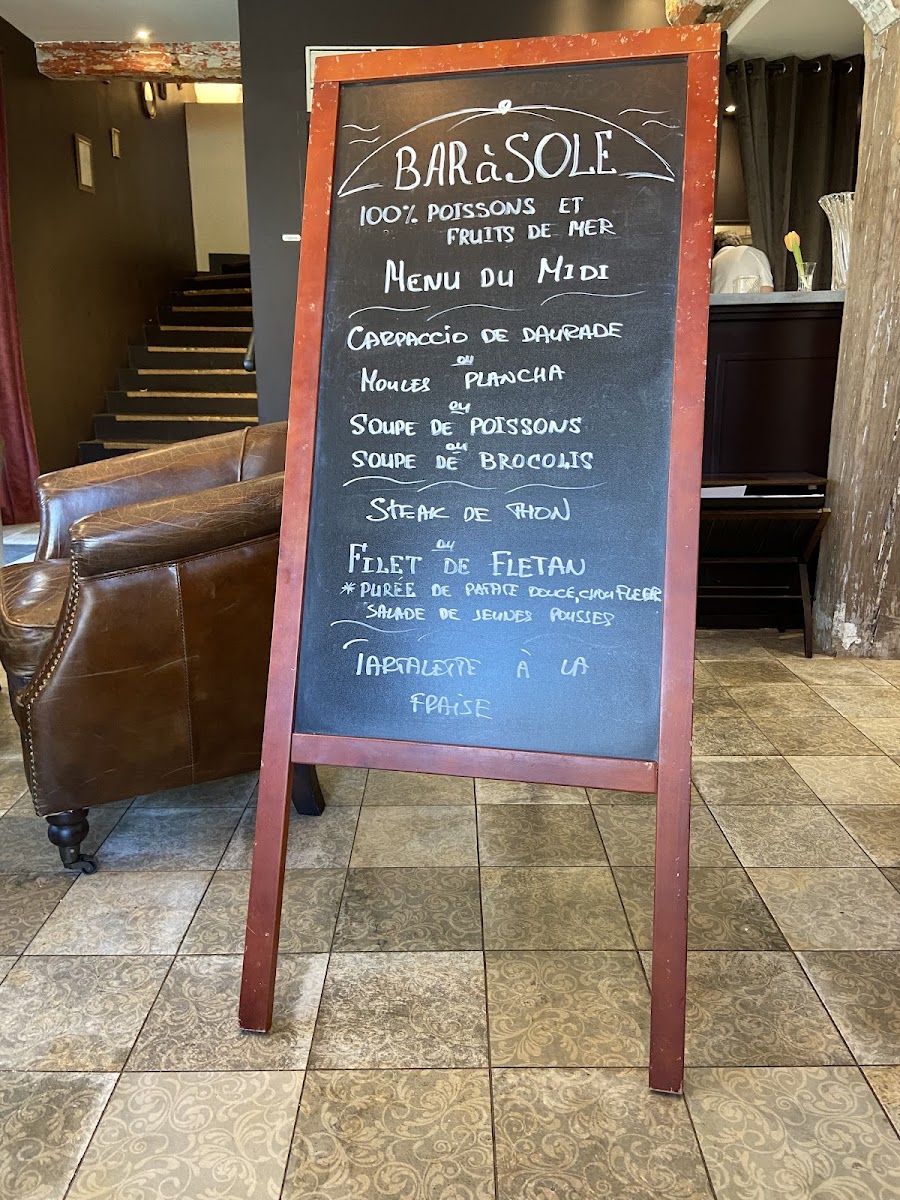 BAR à SOLE
100% POISSONS ET
FRUITS DE MER
MENU DU MIDI
CARPACCIO DE DAURADE
ou
MOULES PLANCHA
ou
SOUPE DE POISSONS
ou
SOUPE DE BROCOLIS
STEAK DE THON
ou
FILET DE FLETAN
* PURÉE DE PATATE DOUCE, CHOU FLEUR
SALADE DE JEUNES POUSSES
TARTALETTE À LA
FRAISE